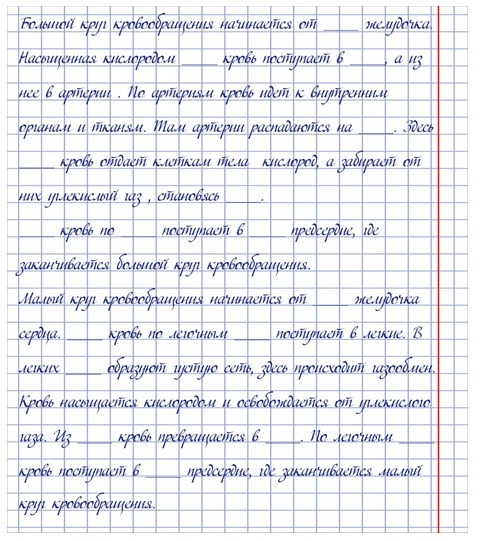 Большой круг кровообращения начинается от _____ желудочка.
Насыщенная кислородом _____ кровь поступает в _____, а из
нее в артерии . По артериям кровь идет к внутренним
органам и тканям. Там артерии распадаются на _____. Здесь
_____ кровь отдает клеткам тела кислород, а забирает от
них углекислый газ , становясь _____.
_____ кровь по _____ поступает в _____ предсердие, где
заканчивается большой круг кровообращения.
Малый круг кровообращения начинается от _____ желудочка
сердца. _____ кровь по легочным _____ поступает в легкие. В
легких _____ образуют густую сеть, здесь происходит газообмен.
Кровь насыщается кислородом и освобождается от углекислого
газа. Из _____ кровь превращается в _____. По легочным _____
кровь поступает в _____ предсердие, где заканчивается малый
круг кровообращения.